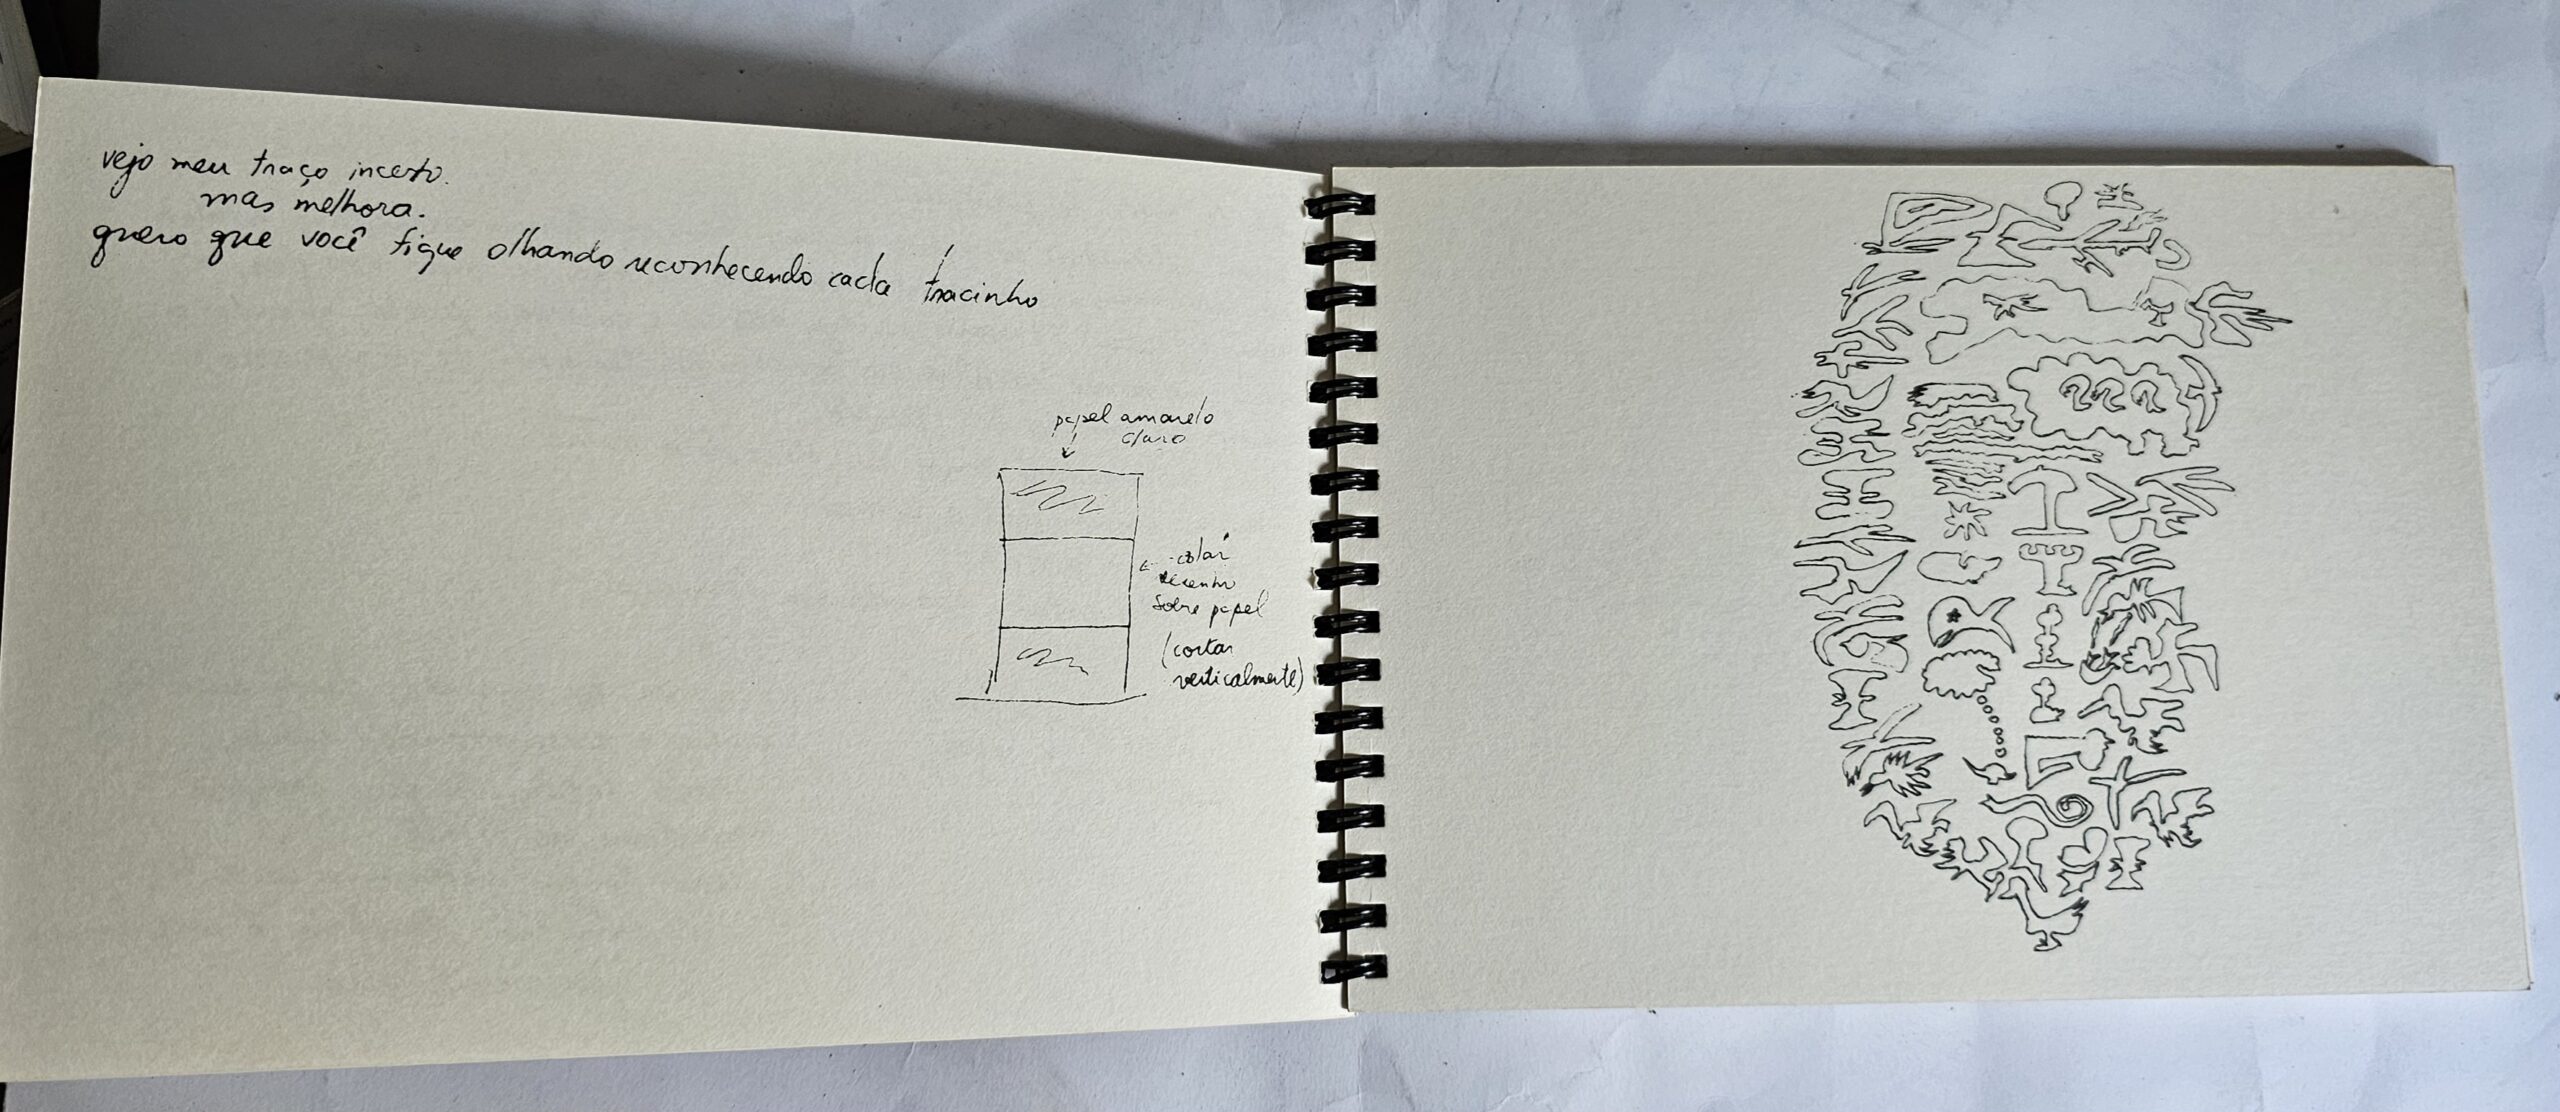 vejo meu traço incerto.
mas melhora.
quero que você fique olhando reconhecendo cada tracinho
papel amarelo
claro
colar
desenho
sobre papel
(cortar
verticalmente)